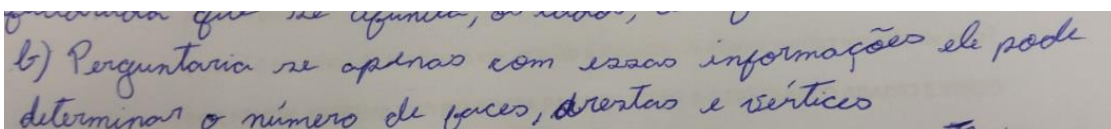 que se afunda, o
b) Perguntaria se apenas com essas informações ele pode
determinar o número de faces, arestas e vértices